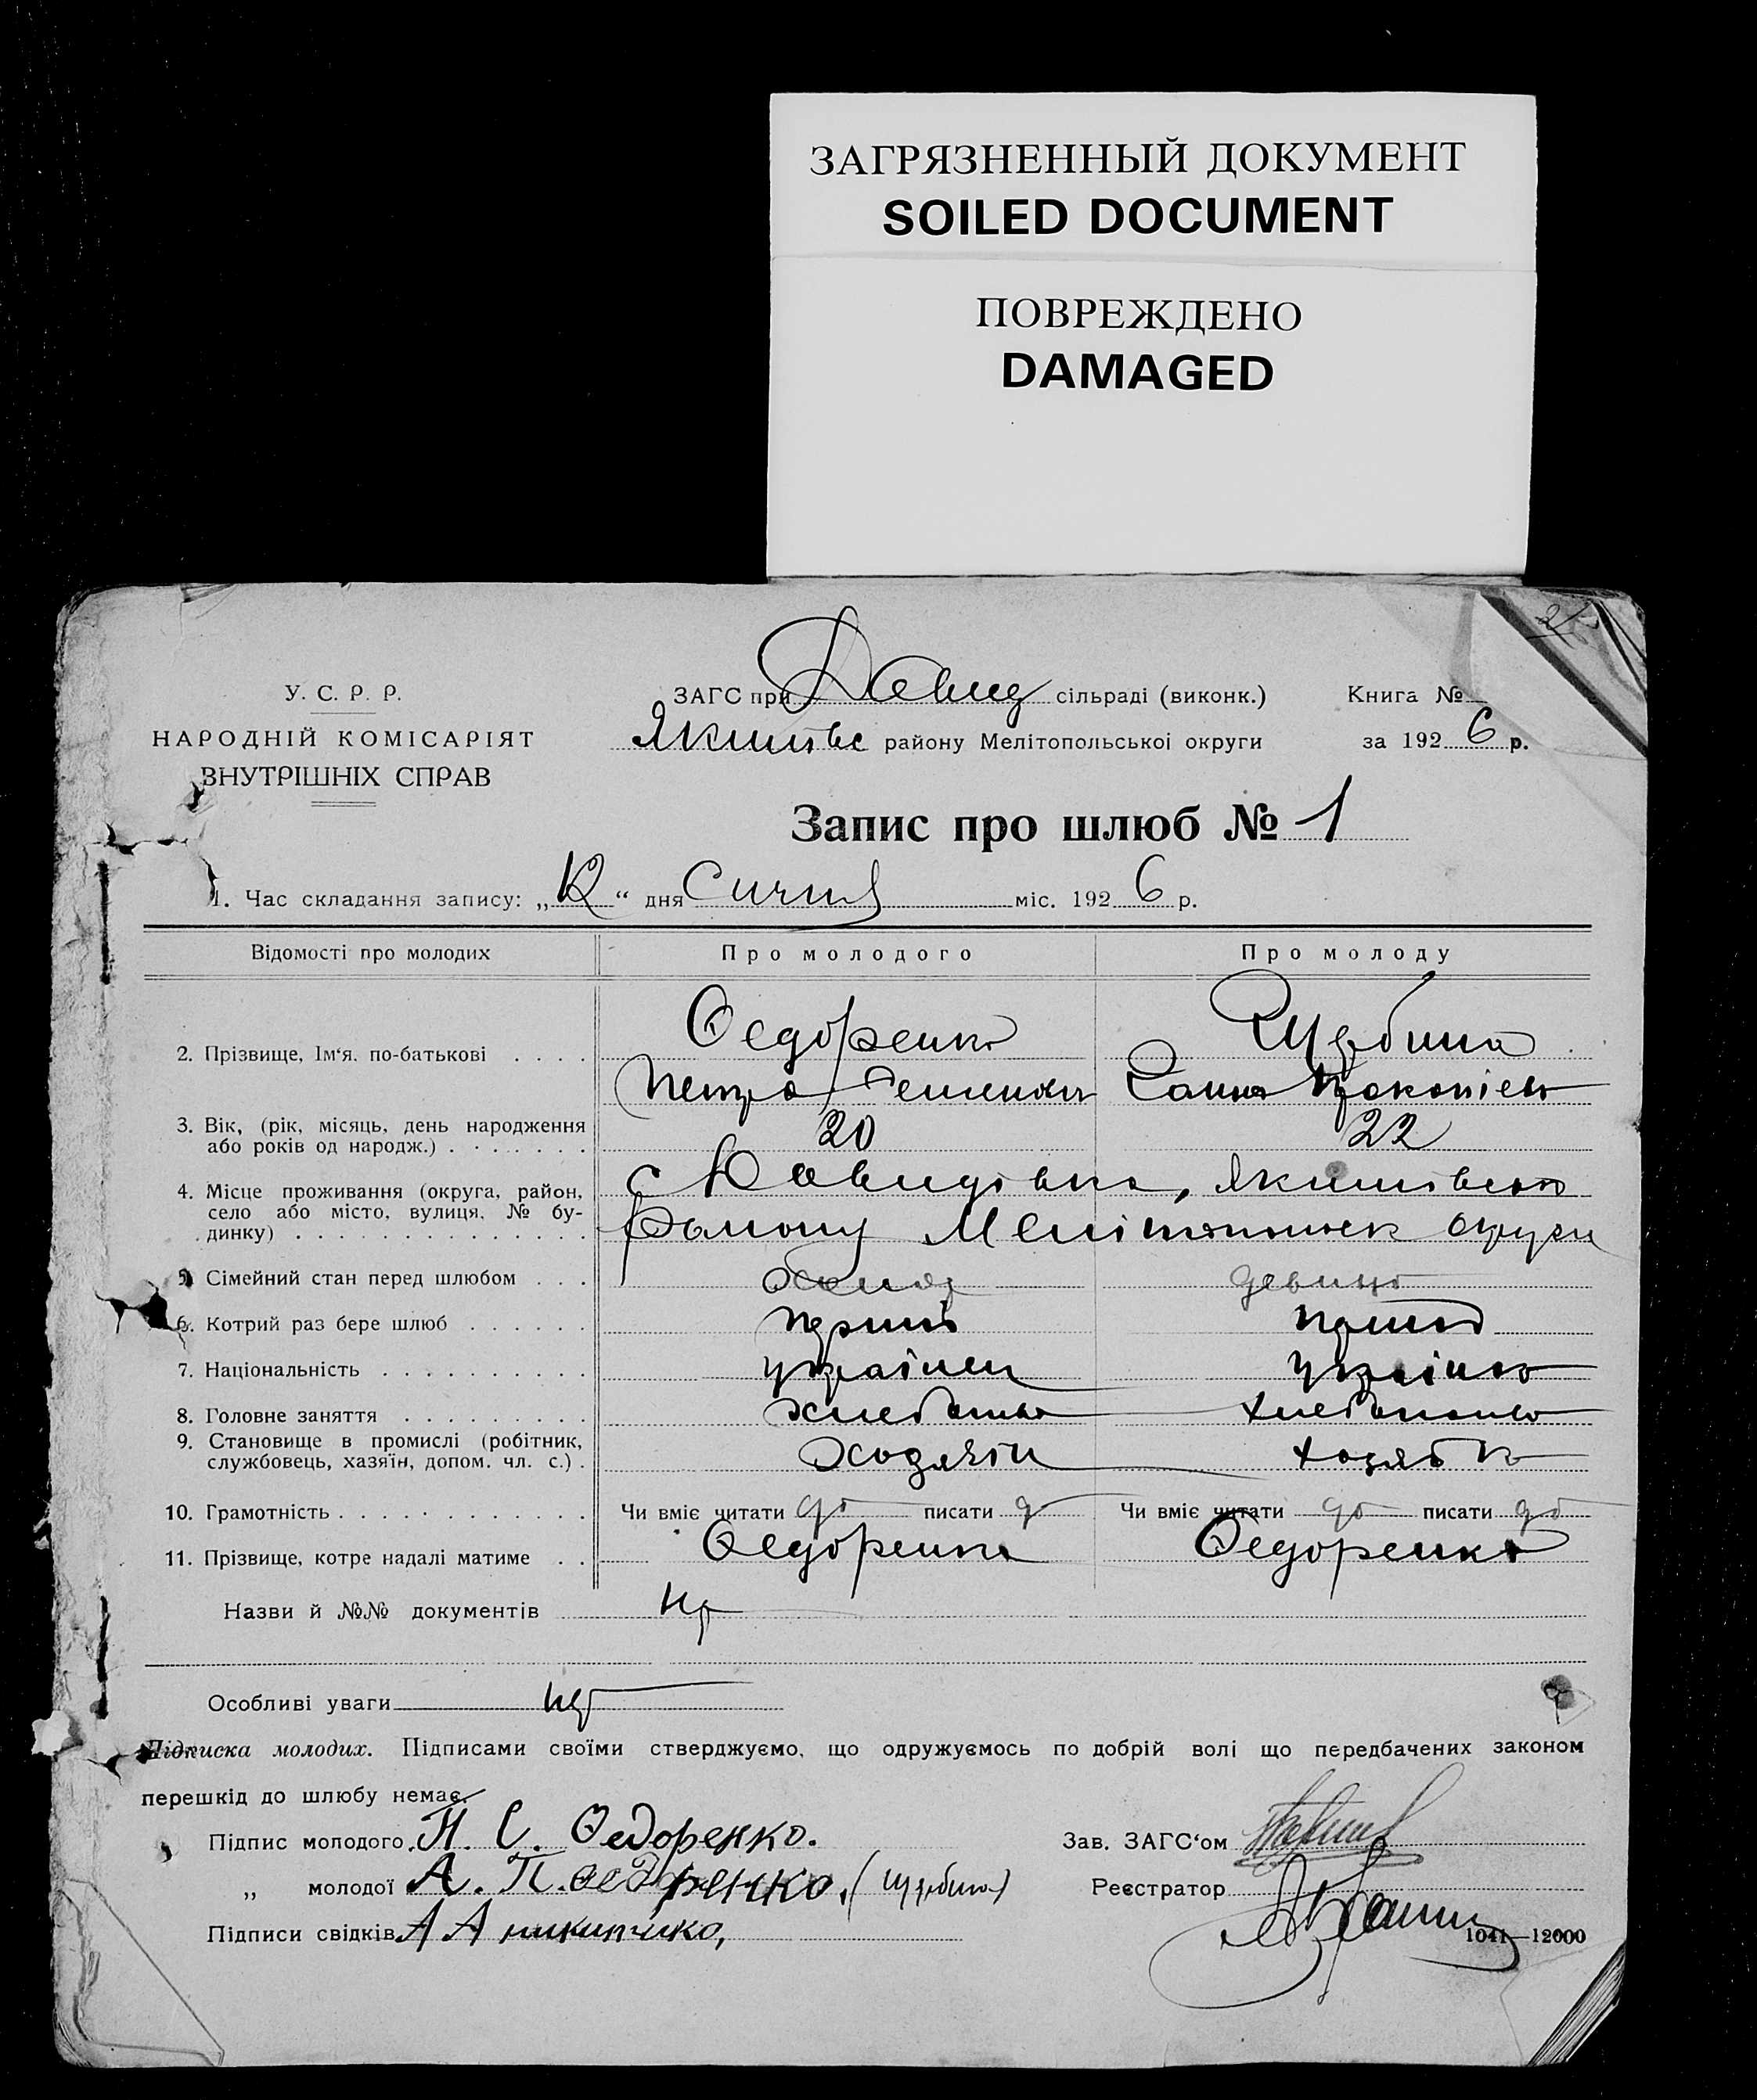 ЗАГРЯЗНЕННЫЙ ДОКУМЕНТ
SOILED DOCUMENT
ПОВРЕЖДЕНО
DAMAGED
2
У. С. Р. Р.
НАРОДНІЙ КОМІСАРІЯТ
ВНУТРІШНІХ СПРАВ
ЗАГС при Давид сільраді (виконк.)
Якимівс району Мелітопольської округи
Книга №
за 1926 р.
Запис про шлюб № 1
1. Час складання запису: „ “ дня Січня міс. 1926 р.
Відомості про молодих Про молодого Про молоду
2. Прізвище, Ім‘я, по-батькові . . . . Федоренко Щербина
Петро Ганна Прокопієв
3. Вік, (рік, місяць, день народження
або років од народж.) . . . . . . . 20 22
4. Місце проживання (округа, район,
село або місто, вулиця, № бу-
динку) . . . . . . . . . . . . . .
с Давидівка, Якимівсько
району Мелітопольск округи
5. Сімейний стан перед шлюбом . . . девиця
6. Котрий раз бере шлюб . . . . . .
7. Національність . . . . . . . . . . українец українка
8. Головне заняття . . . . . . . . .
9. Становище в промислі (робітник,
службовець, хазяїн, допом. чл. с.) .
10. Грамотність . . . . . . . . . . . . Чи вміє читати да писати д Чи вміє читати да писати да
11. Прізвище, котре надалі матиме . . Федоренко Федоренко
Назви й №№ документів
Особливі уваги
Підписка молодих. Підписами своїми стверджуємо, що одружуємось по добрій волі що передбачених законом
перешкід до шлюбу немає.
Підпис молодого П. С. Федоренко.
„ молодої А. П. Федоренко, (Щербина)
Підписи свідків А А
Зав. ЗАГС‘ом
Реєстратор
1041—12000